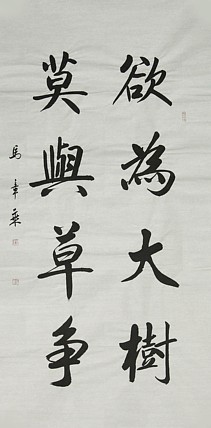 欲為大樹
莫與草争
馬幸乘